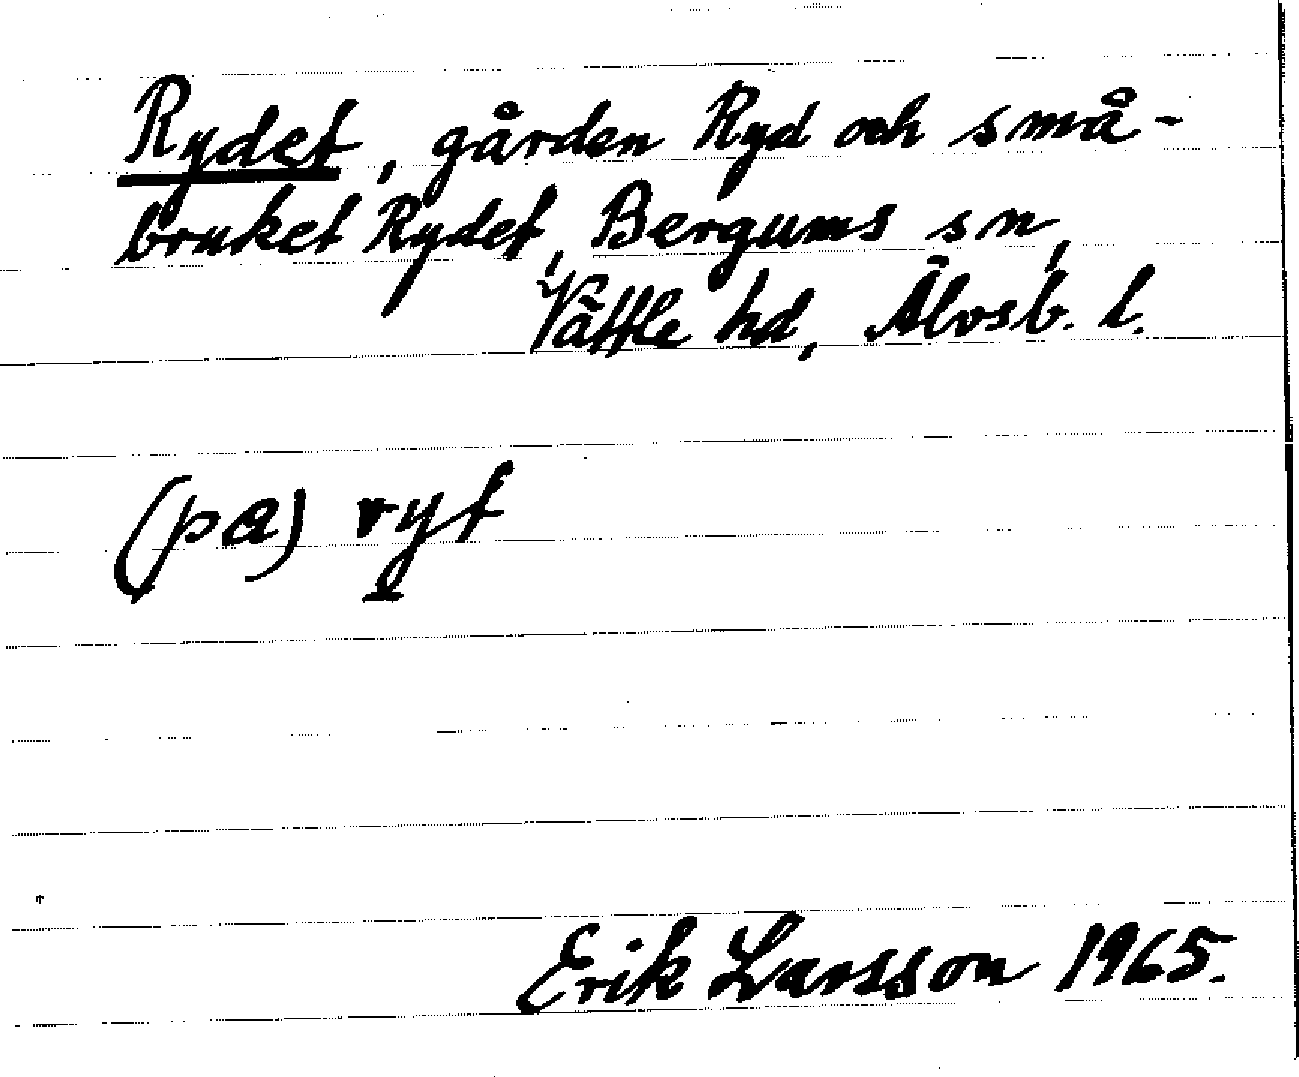 Rydet, gården Ryd och små-
bruket Rydet, Bergums sn,
Vättle hd, Älvsb. l.
(pa) ryt
Erik Larsson 1965.